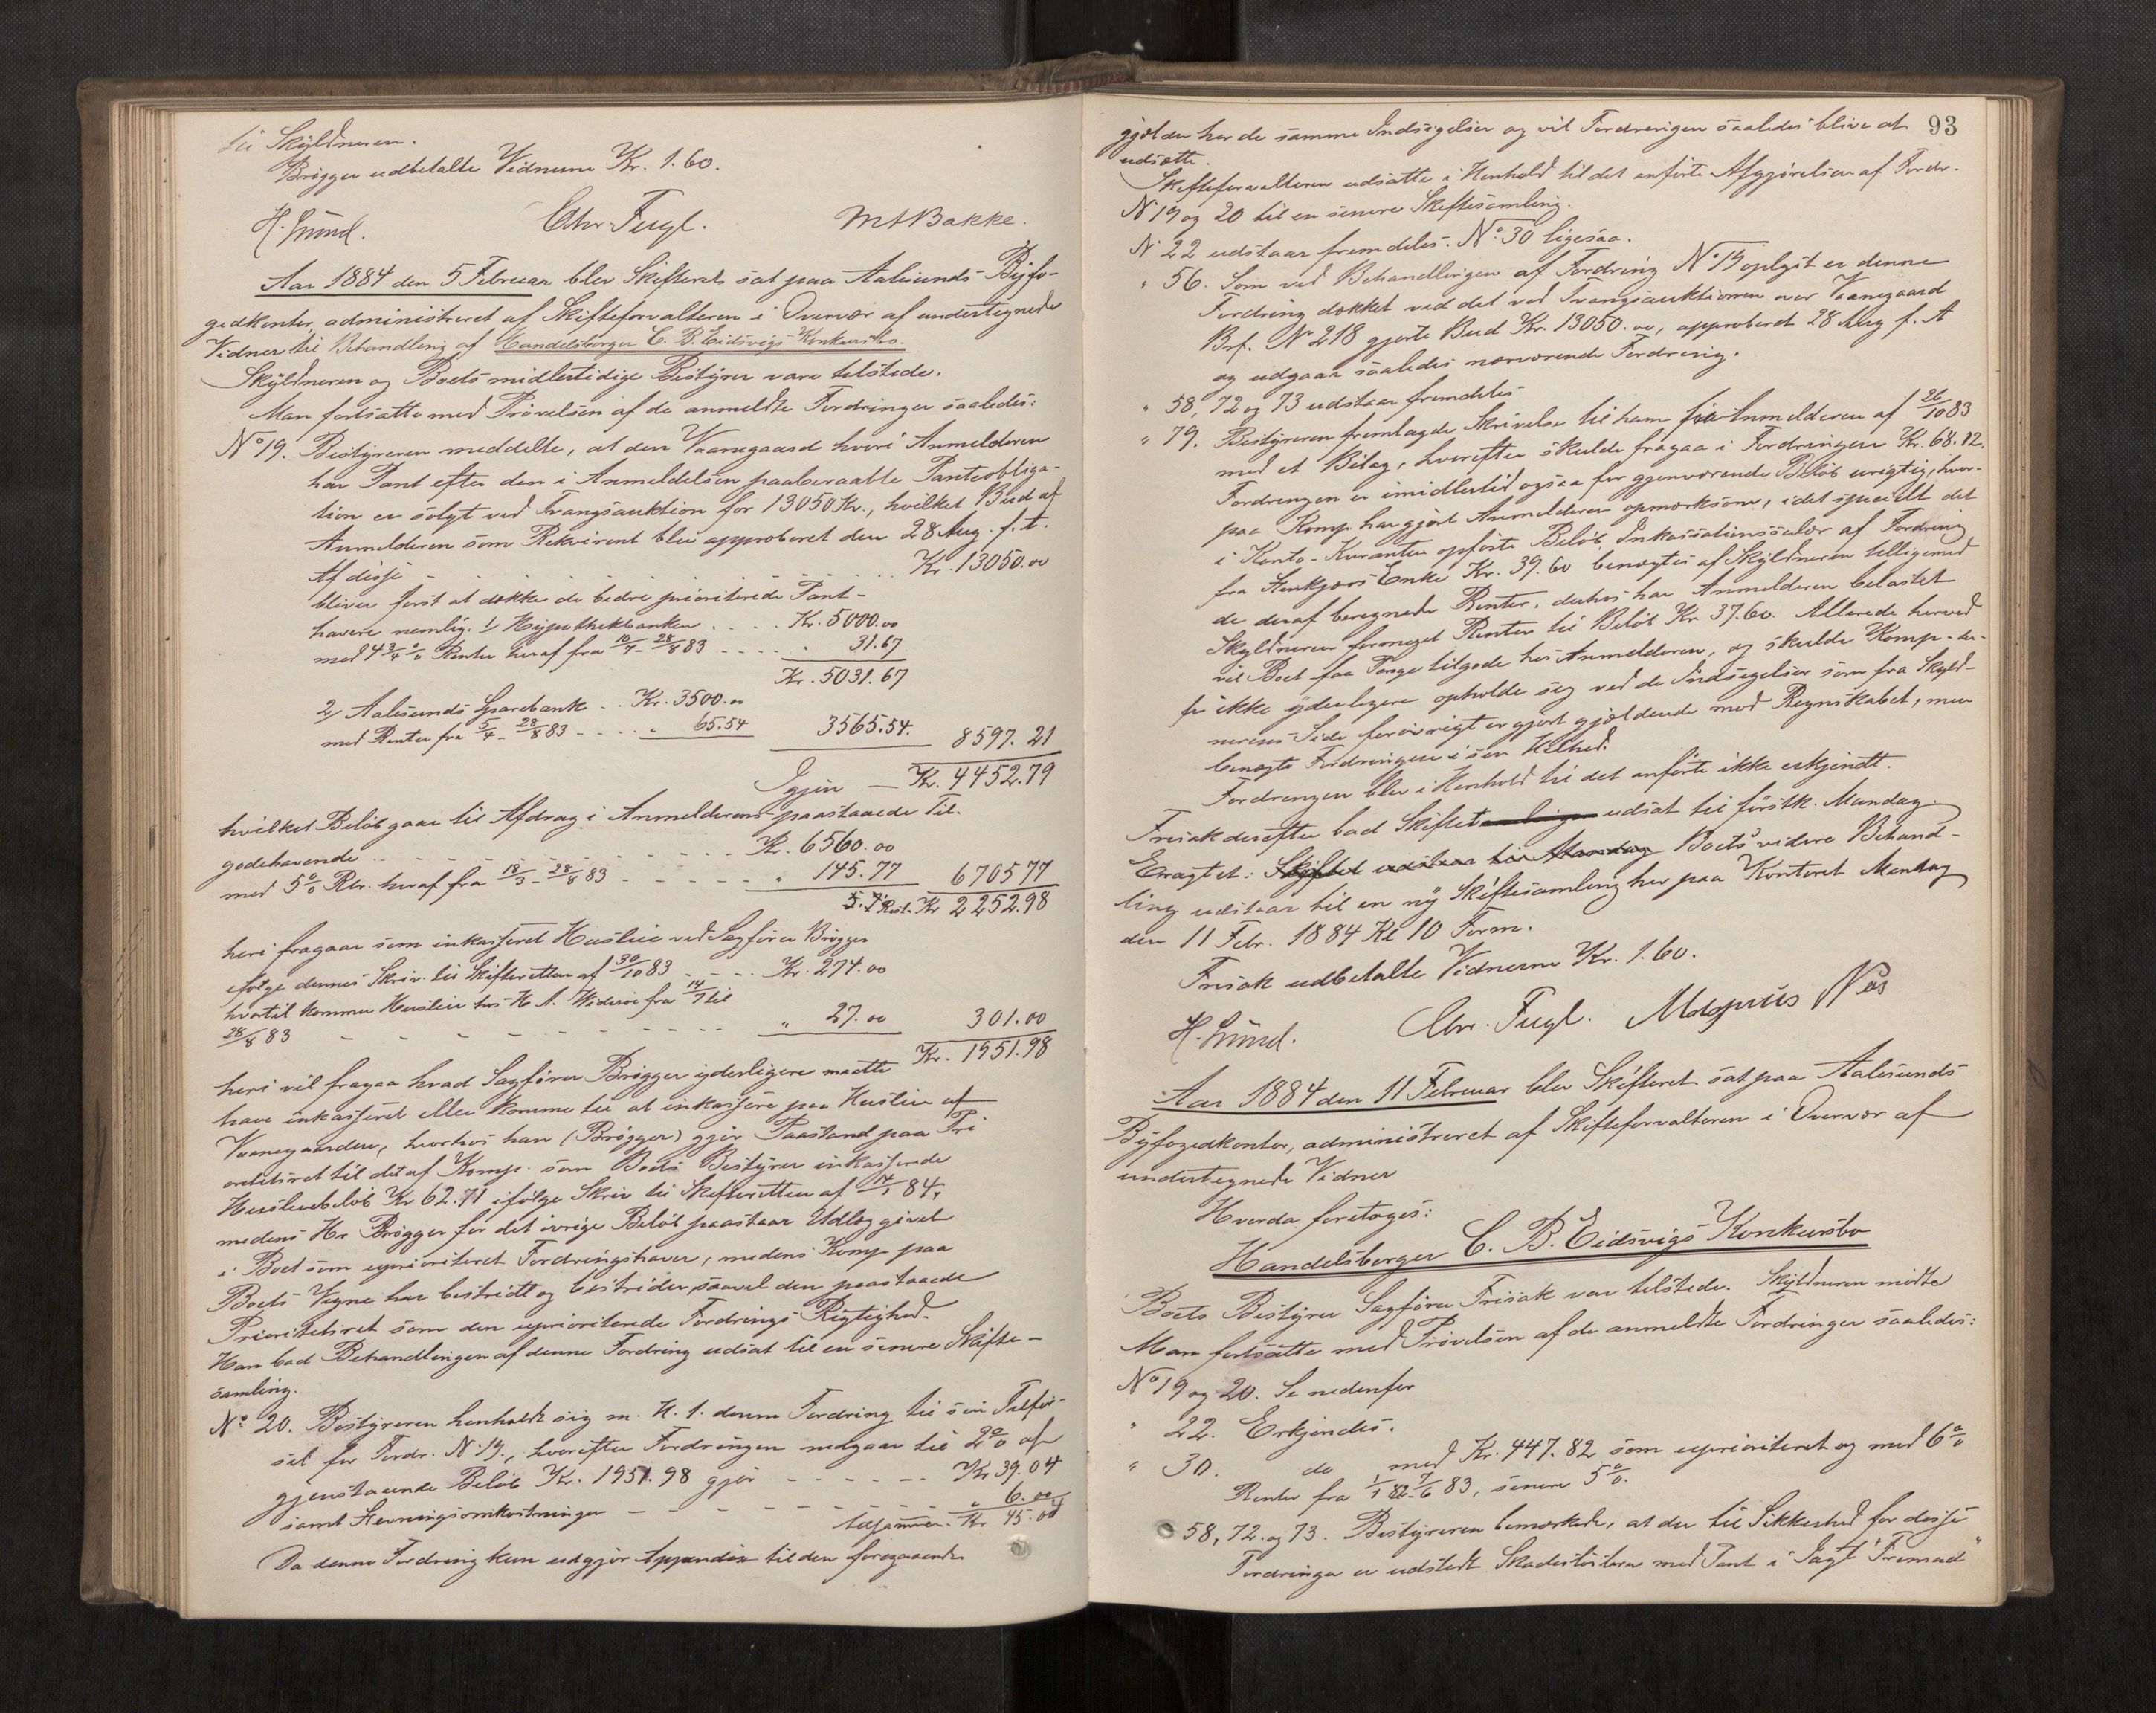 til Skyldneren.
Brøgger udbetalte Vidnerne Kr. 1.60.
H. Lund. Chr. Fugl. M A Bakke.
Aar 1884 den 5 Februar blev Skifteret sat paa Aalesunds Byfo-
gedkontor, administreret af Skifteforvalteren i Overvær af undertegnede
Vidner til Behandling af Handelsborger C. B. Eidsvigs Konkursbo.
Skyldneren og Boets midlertidige Bestyrer vare tilstede.
Man fortsatte med Prøvelsen af de anmeldte Fordringer saaledes:
No 19. Bestyreren meddelte, at den Vaanegaard hvori Anmelderen
har Pant efter den i Anmeldelsen paaberaabte Panteobliga-
tion er solgt ved Tvangsauktion for 13050 Kr., hvilket Bud af
Anmelderen som Rekvirent blev approberet den 28 Aug. f. A.
Af disse - - - - - - Kr. 13050.00
bliver først at dække de bedre prioriterede Pant-
havere nemlig. 1/ Hypothekbanken . . . . Kr. 5000.00
med 4 3/4 % Rente heraf fra 10/7 - 28/8 83 - - - - " 31.67
Kr. 5031.67
2/ Aalesunds Sparebank . . Kr. 3500.00
med Renter fra 5/4 - 28/8 83 - - - - " 65.54 3565.54. 8597.21
Igjen — Kr. 4452.79
hvilket Beløb gaar til Afdrag i Anmelderens paastaaede Til-
godehavende . . - - - - - - Kr. 6560.00
med 5 % Rtr. heraf fra 18/3 - 28/8 83 - - - - - " 145.77 6705 77
Rest. Kr 2252.98
heri fragaar som inkasseret Husleie ved Sagfører Brøgger
ifølge dennes Skriv. til Skifteretten af 30/10 83 - - - - Kr. 274.00
hvortil kommer Husleie hos H. A. Widerøe fra 14/7 til
28/8 83 - - - - - - - - " 27.00 301.00
Kr. 1951.98
heri vil fragaa hvad Sagfører Brøgger yderligere maatte
have inkasseret eller komme til at inkassere paa Husleie af
Vaanegaarden, hvorhos han (Brøgger) gjør Paastand paa Pri
oritetsret til det af Komp. som Boets Bestyrer inkasserede
Husleiebeløb Kr 62.71 ifølge Skriv til Skifteretten af 14/1 84,
medens Hr Brøgger for det øvrige Beløb paastaar Udlæg givet
i Boet som uprioriteret Fordringshaver, medens Komp paa
Boets Vegne har bestridt og bestrider saavel den paastaaede
Prioritetsret som den uprioriterede Fordrings Rigtighed.
Han bad Behandlingen af denne Fordring udsat til en senere Skifte-
samling.
No 20. Bestyreren henholdt sig m. H. t. denne Fordring til sin Tilfør-
sel for Fordr. No 19., hvorefter Fordringen nedgaar til 2 % af
gjenstaaende Beløb Kr. 1951.98 gjør - - - - - - Kr 39.04
samt Hævningsomkostninger - - - - - - - - " 6.00
tilsammen. Kr 45.04
Da denne Fordring kun udgjør Appendix til den foregaaende
93
gjælder her de samme Indsigelser og vil Fordringen saaledes blive at
udsætte.
Skifteforvalteren udsatte i Henhold til det anførte Afgjørelsen af Fordr.
No 19 og 20 til en senere Skiftesamling.
No 22 udstaar fremdeles. No 30 ligesaa.
" 56. Som ved Behandlingen af Fordring No 19 oplyst er denne
Fordring dækket ved det ved Tvangsauktionen over Vaanegaard
Brf. No 218 gjorte Bud Kr. 13050.00, approberet 28 Aug f. A
og udgaar saaledes nærværende Fordring.
" 58, 72 og 73 udstaar fremdeles
" 79. Bestyreren fremlagde Skrivelse til ham fra Anmelderen af 26/10 83
med et Bilag, hvorefter skulde fragaa i Fordringen Kr. 68.12.
Fordringen er imidlertid ogsaa for gjenværende Beløb urigtig, hvor-
paa Komp. har gjort Anmelderen opmærksom, idet specielt det
i Konto-Kuranten opførte Beløb, Inkassationssalær af Fordring
fra Enke Kr. 39.60 benægtes af Skyldneren tilligemed
de deraf beregnede Renter, derhos har Anmelderen belastet
Skyldneren formeget Renter til Beløb Kr 37.60. Allerede herved
vil Boet faa Penge tilgode hos Anmelderen, og skulde Komp. der-
for ikke yderligere opholde sig ved de Indsigelser som fra Skyld-
nerens Side forøvrigt er gjort gjældende mod Regnskabet, men
benægte Fordringen i sin Helhed.
Fordringen blev i Henhold til det anførte ikke erkjendt.
Frisak derefter bad Skiftet udsat til førstk. Mandag.
Eragtet: Skiftet udstaar til Mandag Boets videre Behand-
ling udstaar til en ny Skiftesamling her paa Kontoret Mandag
den 11 Febr. 1884 Kl 10 Form.
Frisak udbetalte Vidnerne Kr. 1.60.
H. Lund. Chr. Fugl. Magnus Næs
Aar 1884 den 11 Februar blev Skifteret sat paa Aalesunds
Byfogedkontor, administreret af Skifteforvalteren i Overvær af
undertegnede Vidner
Hvorda foretoges:
Handelsborger C. B. Eidsvigs Konkursbo
Boets Bestyrer Sagfører Frisak var tilstede. Skyldneren mødte
Man fortsatte med Prøvelsen af de anmeldte Fordringer saaledes:
No 19 og 20. Se nedenfor
" 22. Erkjendes.
" 30. do med Kr. 447.82 som uprioriteret og med 6 %
Renter fra 1/1 82 - 7/6 83, senere 5 %.
" 58, 72. og 73. Bestyreren bemærkede, at der til Sikkerhed for disse
Fordringer er udstedt Skadesløsbrev med Pant i Jagt "Fremad"